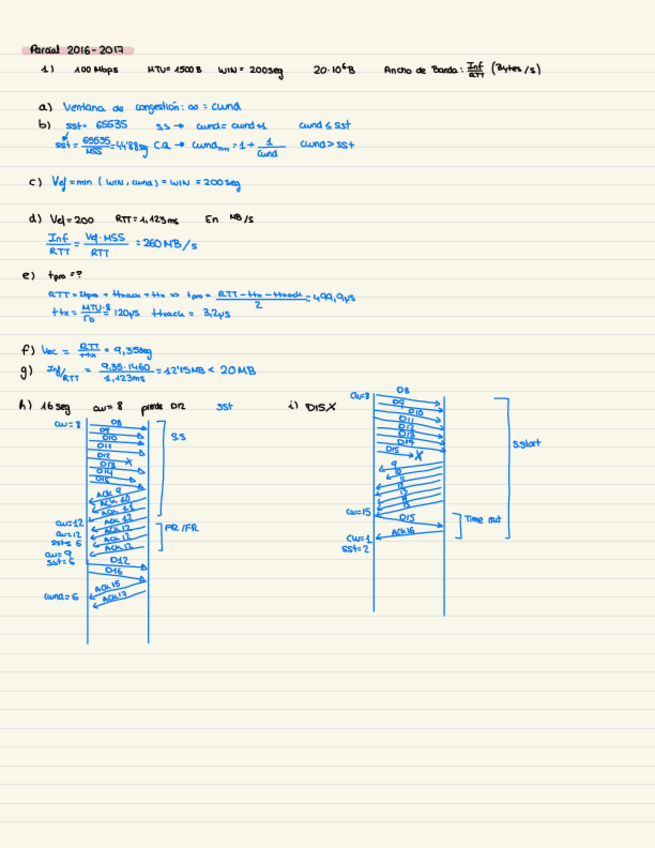 Parcial 2016-2017
1) 100 Mbps MTU= 1500 B WIN = 200 seg 20·10⁶B Ancho de Banda: Inf/RTT (Bytes/s)
a) Ventana de congestión: ∞ = cwnd
b) sst= 65535 ss → cwnd= cwnd+1 cwnd ≤ sst
sst = 65535/MSS = 44'88sg CA → cwnd = 1 + 1/cwnd cwnd > sst
c) Vef = min (WIN, cwnd) = WIN = 200 seg
d) Vef = 200 RTT = 1,123ms En MB/s
Inf/RTT = Vef·MSS/RTT = 260 MB/s
e) tpro = ?
RTT = 2tpro + ttxack + ttx => tpro = RTT - ttx - ttxack/2 = 499,9μs
ttx = MTU·8/ = 120μs ttxack = 3,2μs
f) Vec = RTT/ttx = 9,35seg
g) Inf/RTT = 9,35·1460/1,123ms = 12'15MB < 20 MB
h) 16 seg cw= 8 pierde D12 sst i) D15X
cw= 8 D8
D9
D10
D11
D12
D13 X
D14
D15
SS
ACK 9
ACK 10
ACK 11
cw=12 ACK 12
cw=12 ACK 12
sst= 6 ACK 12
ACK 12
FR/FR
cw= 9
sst= 6 D12
D16
ACK 15
cwnd = 6 ACK 17
cw=8 D8
D9
D10
D11
D12
D13
D14
D15 X
9
13
Sstart
cw=15 D15
Time out
cw=1 ACK 16
sst=2